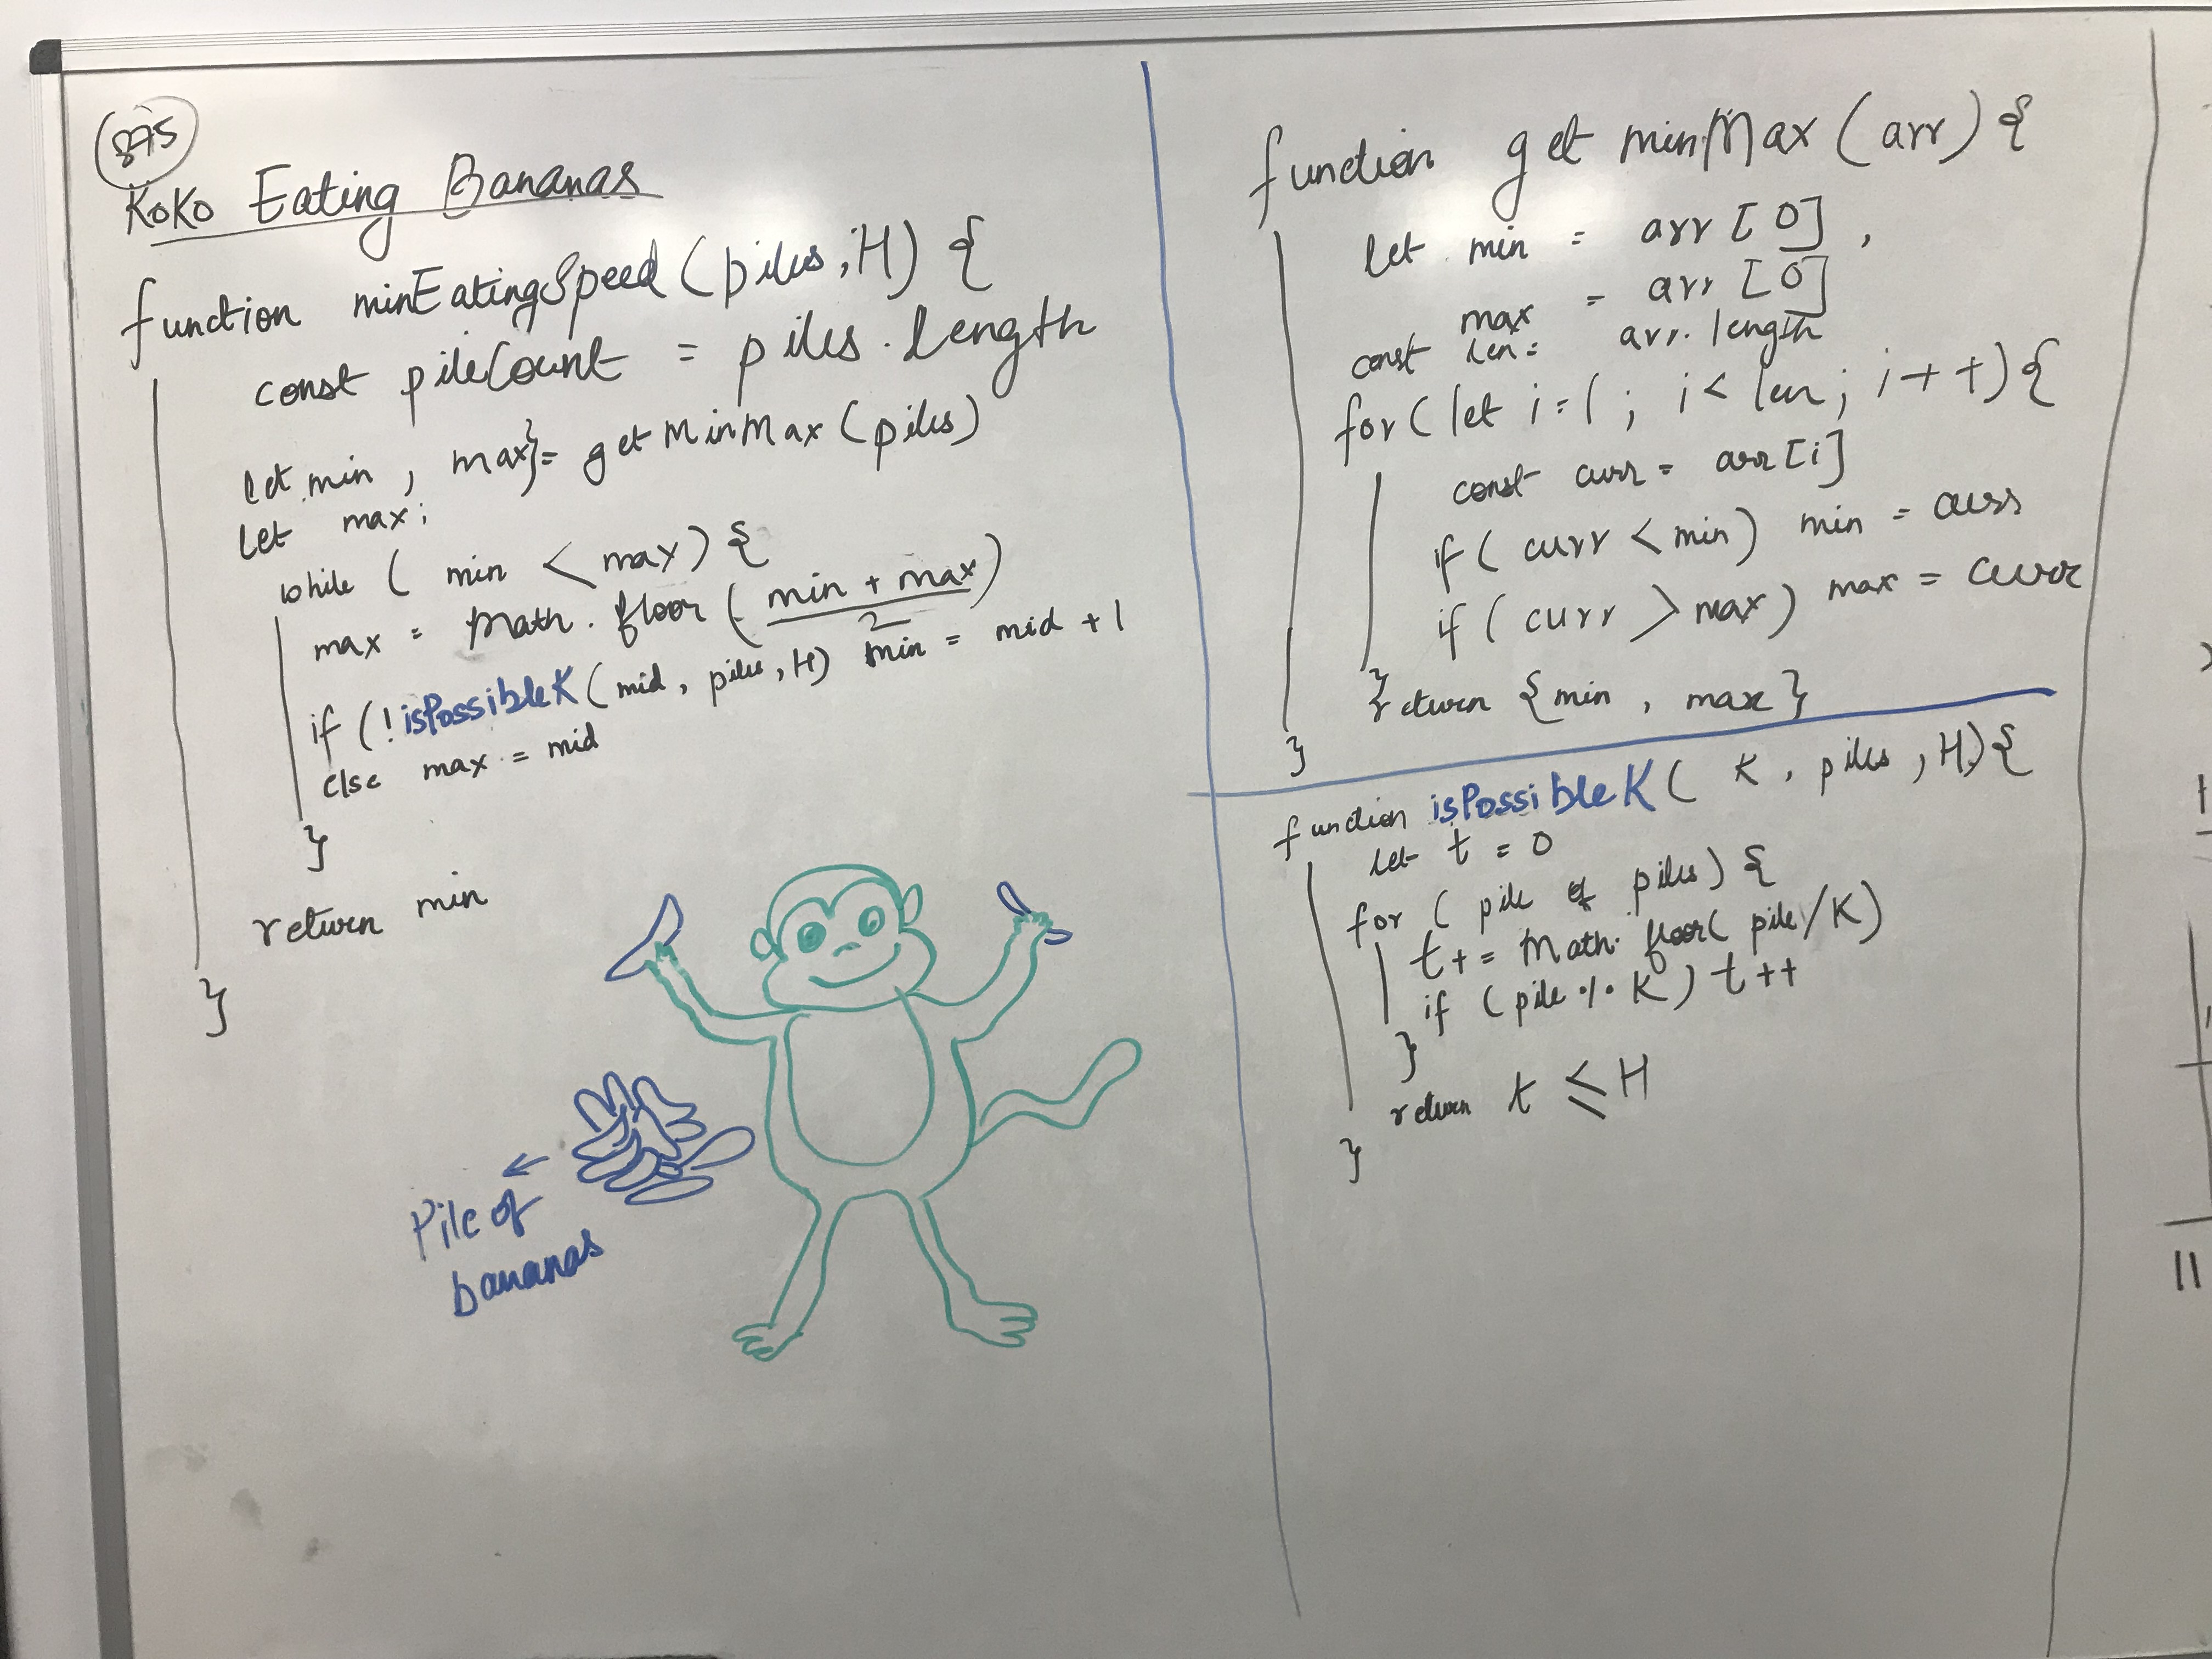 875
KoKo Eating Bananas
function minEatingSpeed(piles,H) {
const pileCount = piles.length
let min , max}= getMinMax(piles)
let max;
while ( min < max) {
max = Math.floor(min + max
2)
if (!isPossibleK(mid, piles, H) min = mid + 1
else max = mid
}
return min
}
Pile of
bananas
function get minMax (arr) {
let min = arr [0] ,
max = arr [0]
const len= arr.length
for( let i=1 ; i < len; i++){
const curr = arr[i]
if ( curr < min) min = curr
if ( curr > max) max = curr
}
return {min , max }
}
function isPossibleK( K, piles , H){
let t = 0
for ( pile of piles) {
t += Math.floor( pile/K)
if (pile % K) t++
}
return t ≤ H
}
11